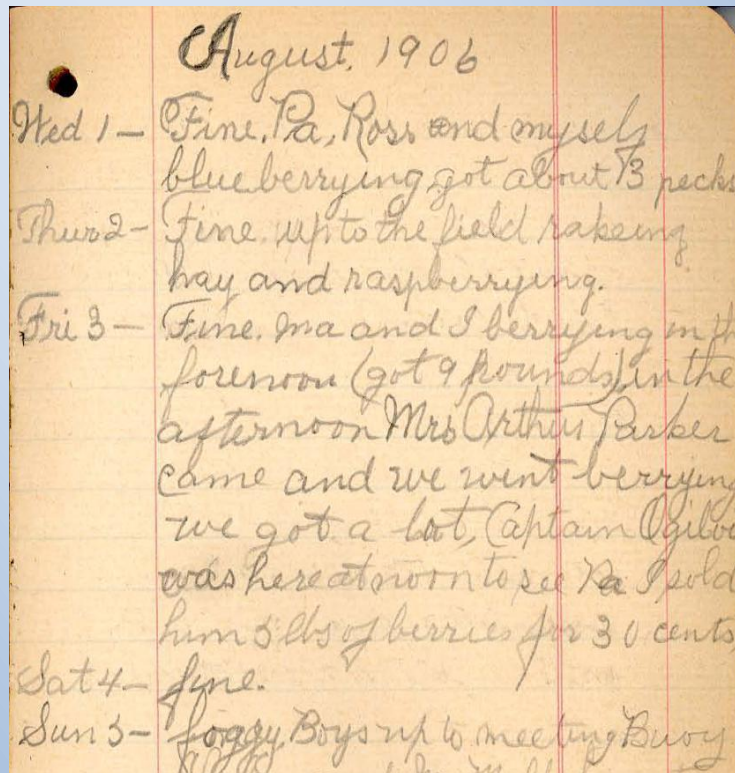 August, 1906
Wed 1 - Fine, Pa, Ross and myself
blueberrying, got about 13 pecks
Thur 2 - Fine. up to the field rakeing
hay and raspberrying.
Fri 3 - Fine. ma and I berrying in th
forenoon (got 9 pounds), in the
afternoon Mrs Arthur Parker
came and we went berrying
we got a lot, Captain Ogilv
was here at noon to see Pa I sold
him 5 lbs of berries for 30 cents,
Sat 4 - fine.
Sun 5 - foggy, Boys up to meeting Buoy